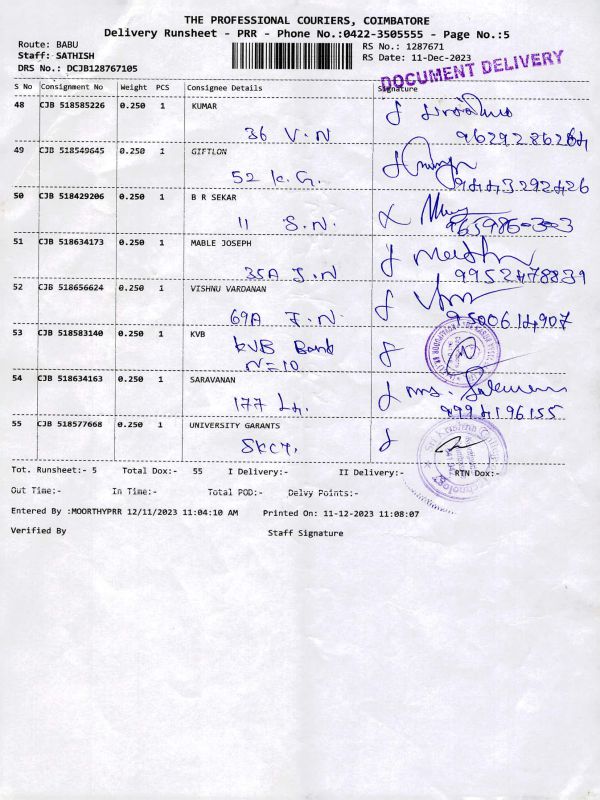 THE PROFESSIONAL COURIERS, COIMBATORE
Delivery Runsheet - PRR - Phone No.:0422-3505555 - Page No.:5
Route: BABU
RS No.: 1287671
Staff: SATHISH
RS Date: 11-Dec-2023
DRS No.: DCJB128767105
DOCUMENT DELIVERY
S No Consignment No Weight PCS Consignee Details Signature
48 CJB 518585226 0.250 1 KUMAR
36 V.N
9629286264
49 CJB 518549645 0.250 1 GIFTLON
52 K.G.
9443292426
50 CJB 518429206 0.250 1 B R SEKAR
11 S.N.
51 CJB 518634173 0.250 1 MABLE JOSEPH
35A J.N
9952478839
52 CJB 518656624 0.250 1 VISHNU VARDANAN
69A J.N.
9500614907
53 CJB 518583140 0.250 1 KVB
KVB Bank
N=10
54 CJB 518634163 0.250 1 SARAVANAN
177
9994196155
55 CJB 518577668 0.250 1 UNIVERSITY GARANTS
SKCT.
Tot. Runsheet:- 5 Total Dox:- 55 I Delivery:- II Delivery:- RTN Dox:-
Out Time:- In Time:- Total POD:- Delvy Points:-
Entered By :MOORTHYPRR 12/11/2023 11:04:10 AM Printed On: 11-12-2023 11:08:07
Verified By Staff Signature